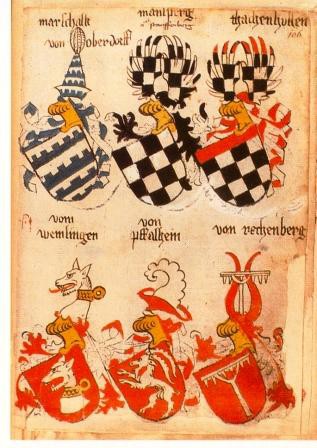 marschalk
von oberdorff
mansperg
hachgenhusen
106
vom
wemdingen
von
pffalhein
von rechenberg